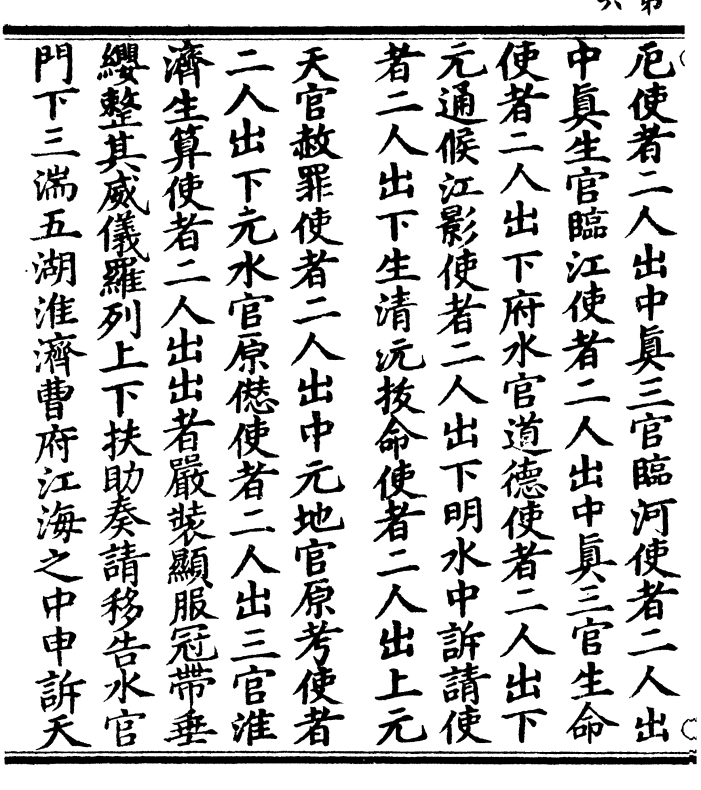 卮使者二人出中眞三官臨河使者二人出
中眞生官臨江使者二人出中眞三官生命
使者二人出下府水官道德使者二人出下
元通候江影使者二人出下明水中訴請使
者二人出下生清沅拔命使者二人出上元
天官赦罪使者二人出中元地官原考使者
二人出下元水官原愆使者二人出三官淮
濟生算使者二人出出者嚴裝顯服冠帶垂
纓整其威儀羅列上下扶助奏請移告水官
門下三湍五湖淮濟曹府江海之中申訴天